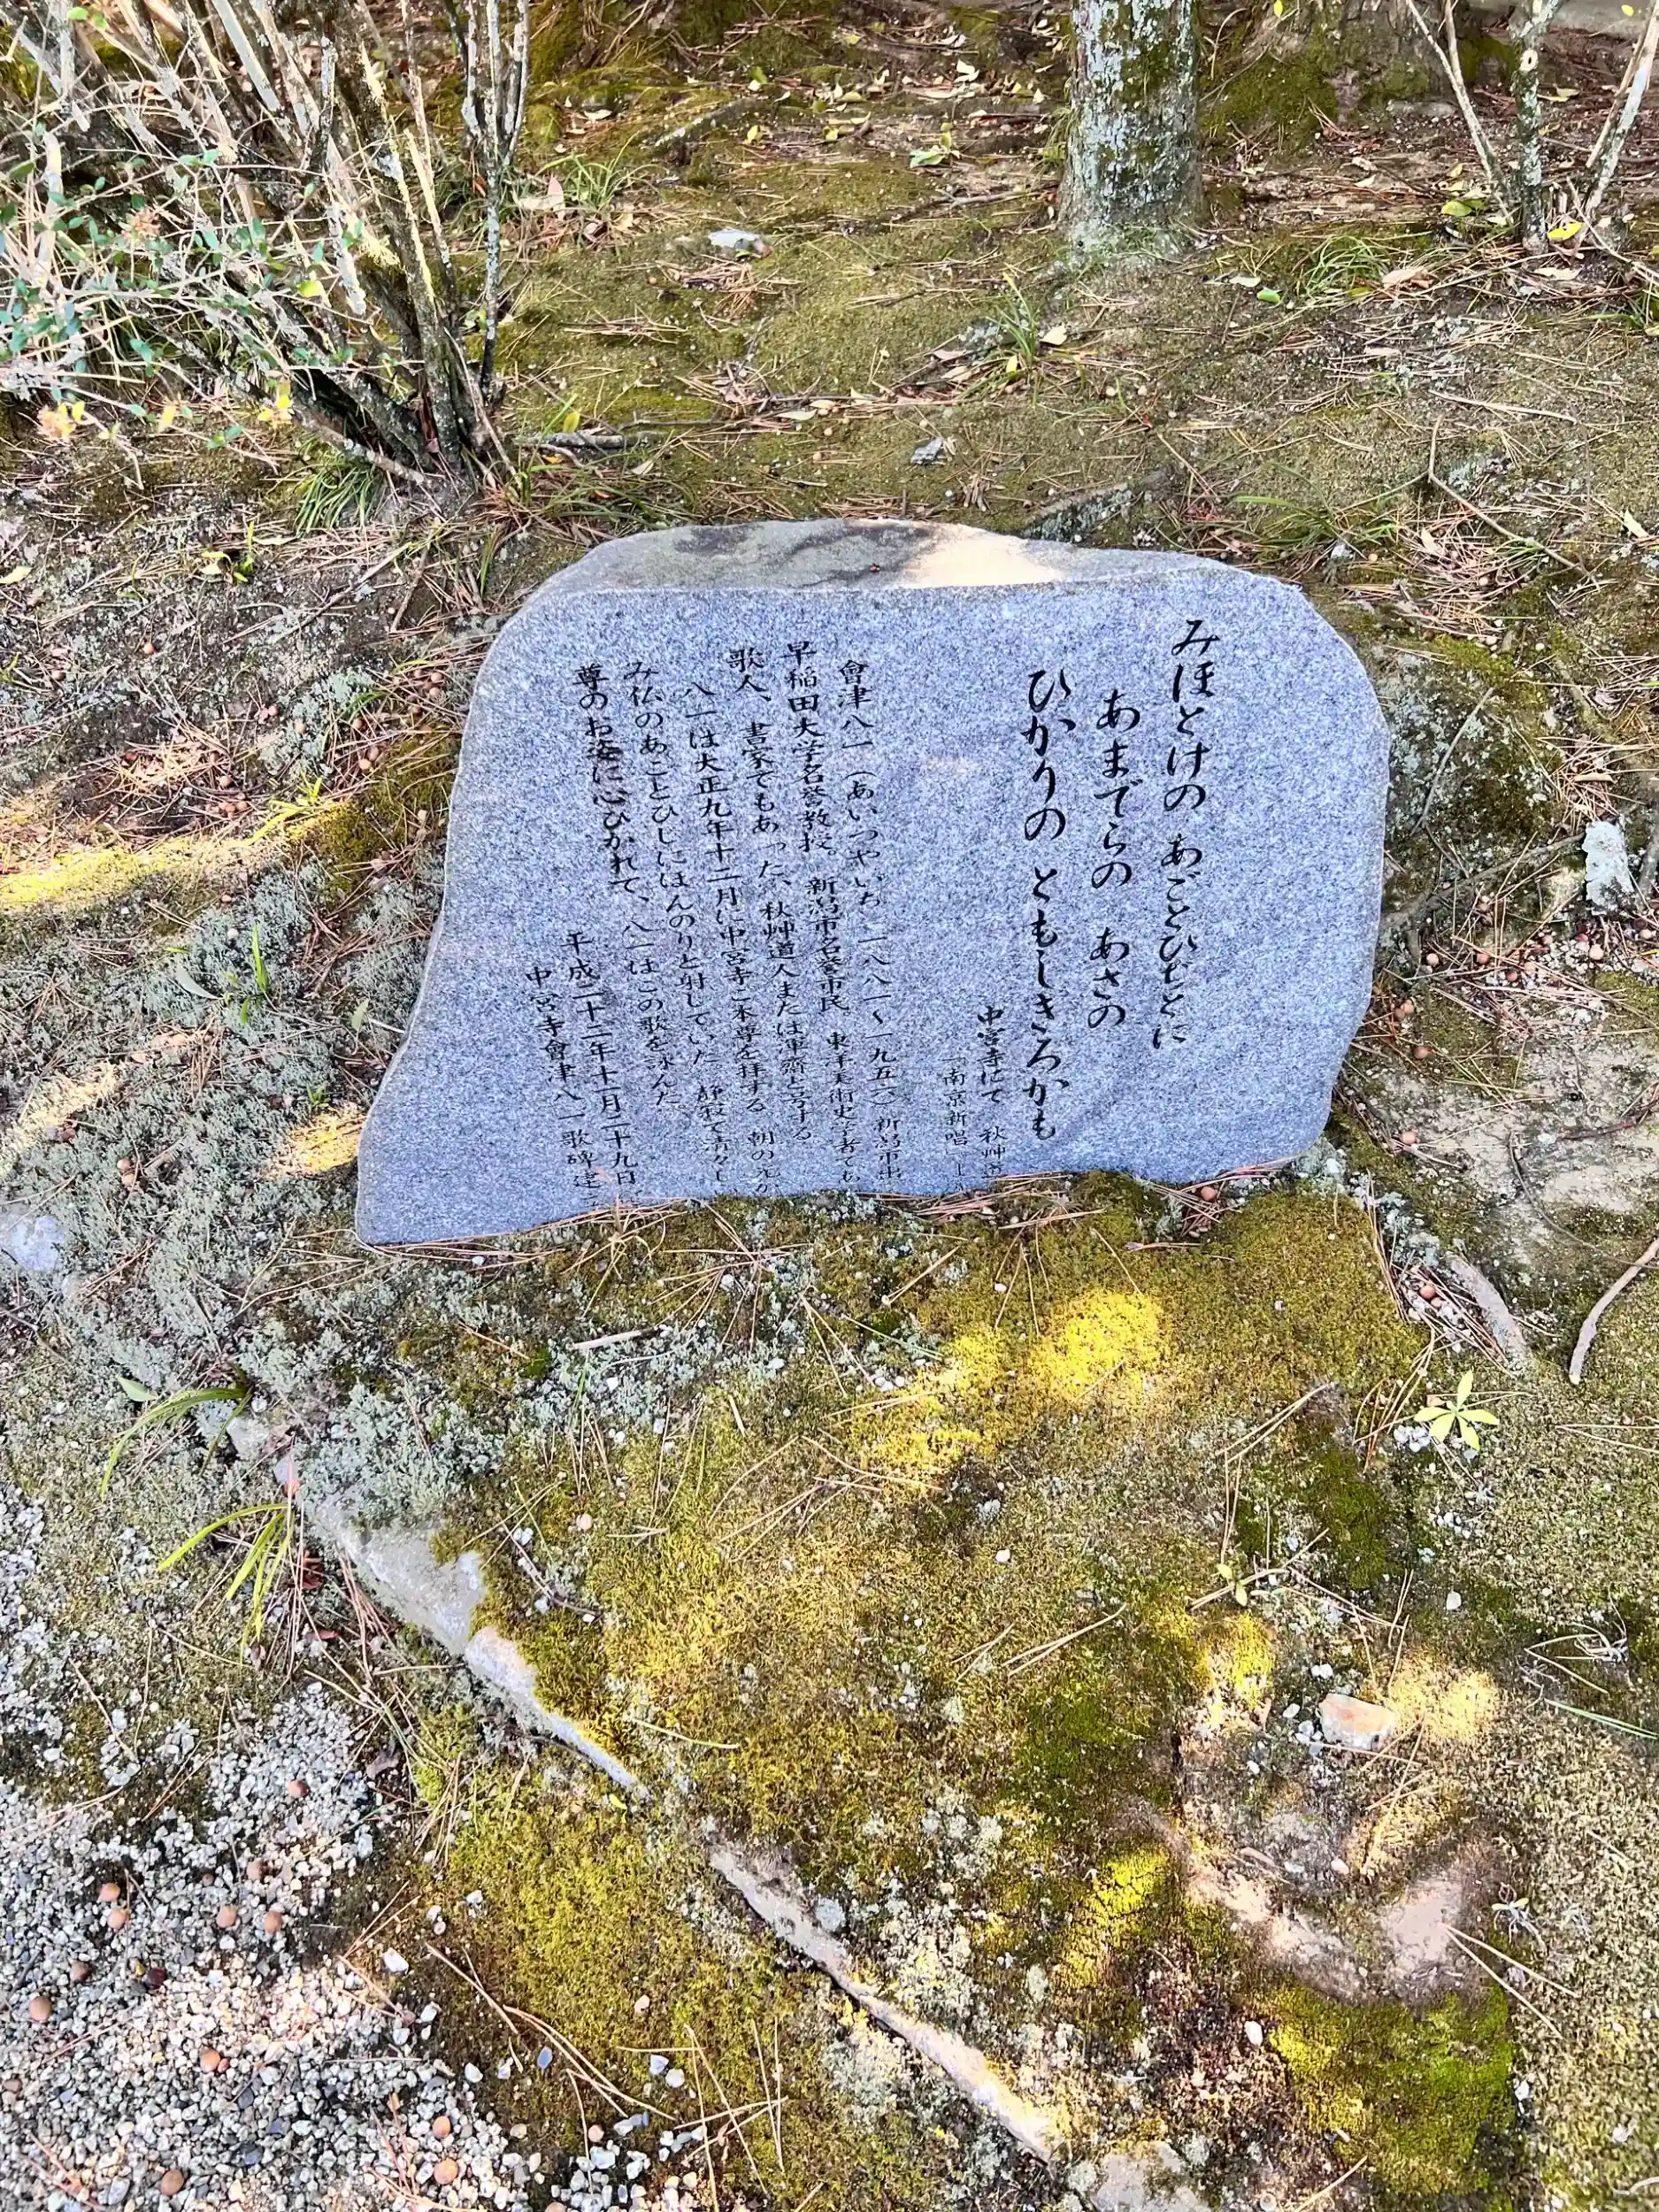 みほとけの あごとひぢとに
あまでらの あさの
ひかりの ともしきろかも
中宮寺にて 秋艸道
「南京新唱」
會津八一(あいづやいち 一八八一〜一九五六)新潟市出
早稲田大学名誉教授。新潟市名誉市民 東洋美術史学者でも
歌人、書家でもあった、秋艸道人または渾齋と号する
八一は大正九年十二月に中宮寺ご本尊を拝する 朝の光が
み仏のあごとひじにほんのりと射していた。静寂で清々し
尊のお姿に心ひかれて、八一はこの歌を詠んだ。
平成二十二年十一月二十九日
中宮寺會津八一歌碑建